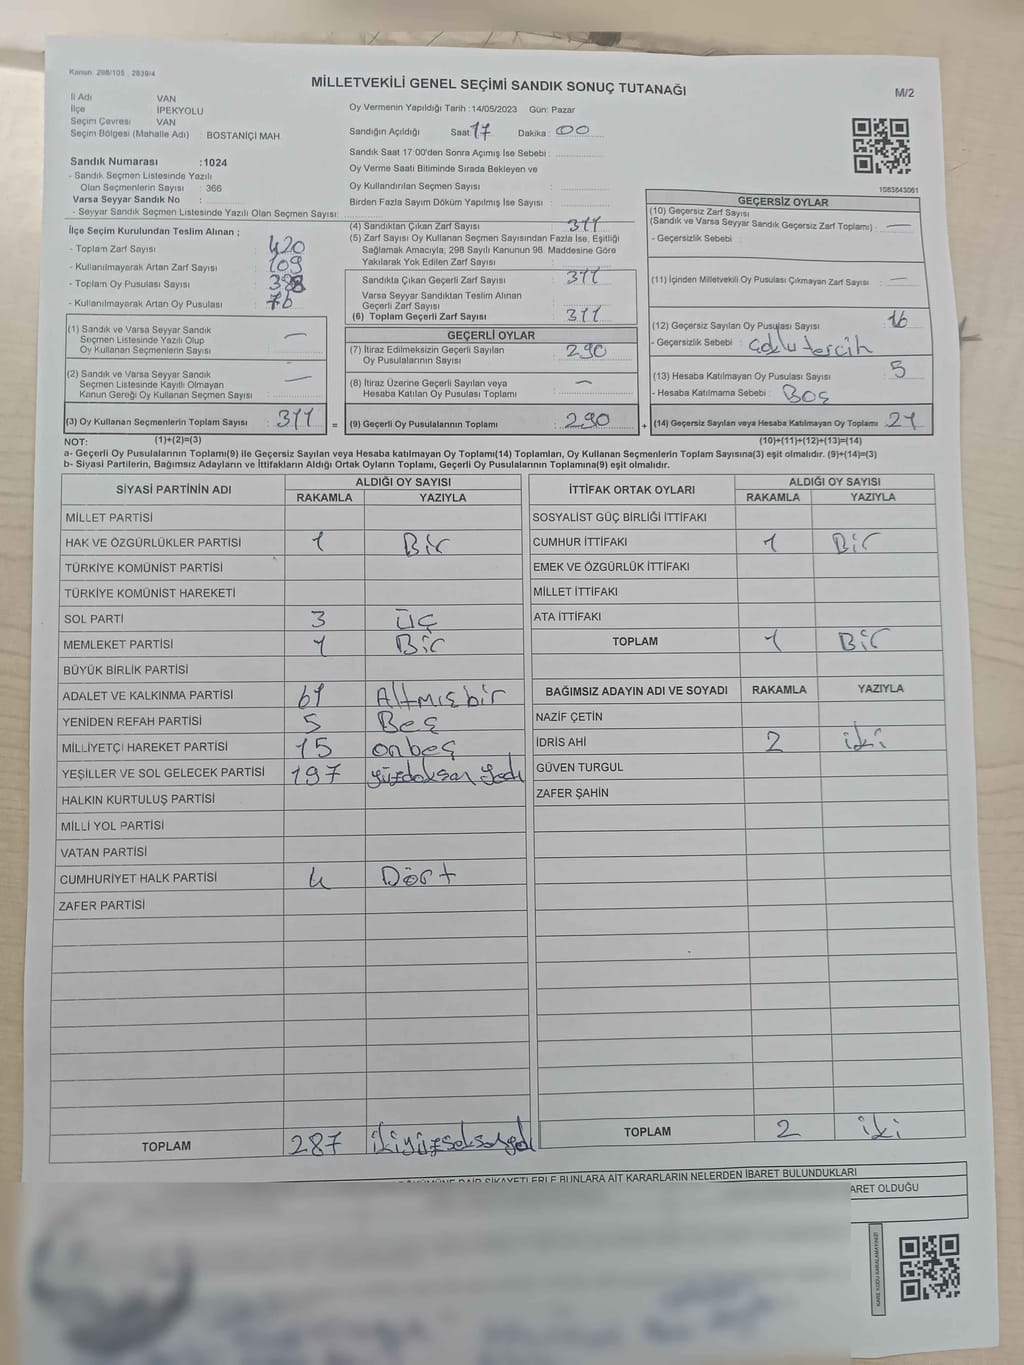 Kanun: 298/105 , 2839/4
MİLLETVEKİLİ GENEL SEÇİMİ SANDIK SONUÇ TUTANAĞI
M/2
İl Adı VAN
İlçe İPEKYOLU
Seçim Çevresi VAN
Seçim Bölgesi (Mahalle Adı) : BOSTANİÇİ MAH
Sandık Numarası :1024
- Sandık Seçmen Listesinde Yazılı
Olan Seçmenlerin Sayısı : 366
Varsa Seyyar Sandık No :
- Seyyar Sandık Seçmen Listesinde Yazılı Olan Seçmen Sayısı:
Oy Vermenin Yapıldığı Tarih :14/05/2023 Gün: Pazar
Sandığın Açıldığı Saat 17 Dakika : 00
Sandık Saat 17:00'den Sonra Açımış İse Sebebi :
Oy Verme Saati Bitiminde Sırada Bekleyen ve
Oy Kullandırılan Seçmen Sayısı :
Birden Fazla Sayım Döküm Yapılmış İse Sayısı :
1083843061
İlçe Seçim Kurulundan Teslim Alınan ;
- Toplam Zarf Sayısı : 420
- Kullanılmayarak Artan Zarf Sayısı : 109
- Toplam Oy Pusulası Sayısı :
- Kullanılmayarak Artan Oy Pusulası : 76
(1) Sandık ve Varsa Seyyar Sandık
Seçmen Listesinde Yazılı Olup
Oy Kullanan Seçmenlerin Sayısı : —
(2) Sandık ve Varsa Seyyar Sandık
Seçmen Listesinde Kayıtlı Olmayan
Kanun Gereği Oy Kullanan Seçmen Sayısı : —
(3) Oy Kullanan Seçmenlerin Toplam Sayısı : 311 =
(4) Sandıktan Çıkan Zarf Sayısı : 311
(5) Zarf Sayısı Oy Kullanan Seçmen Sayısından Fazla İse, Eşitliği
Sağlamak Amacıyla, 298 Sayılı Kanunun 98. Maddesine Göre
Yakılarak Yok Edilen Zarf Sayısı :
Sandıkta Çıkan Geçerli Zarf Sayısı : 311
Varsa Seyyar Sandıktan Teslim Alınan
Geçerli Zarf Sayısı :
(6) Toplam Geçerli Zarf Sayısı : 311
GEÇERLİ OYLAR
(7) İtiraz Edilmeksizin Geçerli Sayılan
Oy Pusulalarının Sayısı : 290
(8) İtiraz Üzerine Geçerli Sayılan veya
Hesaba Katılan Oy Pusulası Toplamı : —
(9) Geçerli Oy Pusulalarının Toplamı : 290 +
GEÇERSİZ OYLAR
(10) Geçersiz Zarf Sayısı
(Sandık ve Varsa Seyyar Sandık Geçersiz Zarf Toplamı) : —
- Geçersizlik Sebebi :
(11) İçinden Milletvekili Oy Pusulası Çıkmayan Zarf Sayısı : —
(12) Geçersiz Sayılan Oy Pusulası Sayısı : 16
- Geçersizlik Sebebi : çoklu tercih
(13) Hesaba Katılmayan Oy Pusulası Sayısı : 5
- Hesaba Katılmama Sebebi : Boş
(14) Geçersiz Sayılan veya Hesaba Katılmayan Oy Toplamı : 21
NOT: (1)+(2)=(3) (10)+(11)+(12)+(13)=(14)
a- Geçerli Oy Pusulalarının Toplamı(9) ile Geçersiz Sayılan veya Hesaba katılmayan Oy Toplamı(14) Toplamları, Oy Kullanan Seçmenlerin Toplam Sayısına(3) eşit olmalıdır. (9)+(14)=(3)
b- Siyasi Partilerin, Bağımsız Adayların ve İttifakların Aldığı Ortak Oyların Toplamı, Geçerli Oy Pusulalarının Toplamına(9) eşit olmalıdır.
SİYASİ PARTİNİN ADI ALDIĞI OY SAYISI
RAKAMLA YAZIYLA
MİLLET PARTİSİ
HAK VE ÖZGÜRLÜKLER PARTİSİ 1 Bir
TÜRKİYE KOMÜNİST PARTİSİ
TÜRKİYE KOMÜNİST HAREKETİ
SOL PARTİ 3 üç
MEMLEKET PARTİSİ 1 Bir
BÜYÜK BİRLİK PARTİSİ
ADALET VE KALKINMA PARTİSİ 61 Altmışbir
YENİDEN REFAH PARTİSİ 5 Beş
MİLLİYETÇİ HAREKET PARTİSİ 15 onbeş
YEŞİLLER VE SOL GELECEK PARTİSİ 197 yüzdoksan yedi
HALKIN KURTULUŞ PARTİSİ
MİLLİ YOL PARTİSİ
VATAN PARTİSİ
CUMHURİYET HALK PARTİSİ 4 Dört
ZAFER PARTİSİ
TOPLAM 287 ikiyüzseksenyedi
İTTİFAK ORTAK OYLARI ALDIĞI OY SAYISI
RAKAMLA YAZIYLA
SOSYALİST GÜÇ BİRLİĞİ İTTİFAKI
CUMHUR İTTİFAKI 1 Bir
EMEK VE ÖZGÜRLÜK İTTİFAKI
MİLLET İTTİFAKI
ATA İTTİFAKI
TOPLAM 1 Bir
BAĞIMSIZ ADAYIN ADI VE SOYADI RAKAMLA YAZIYLA
NAZİF ÇETİN
İDRİS AHİ 2 iki
GÜVEN TURGUL
ZAFER ŞAHİN
TOPLAM 2 iki
DAİR ŞİKAYETLERLE BUNLARA AİT KARARLARIN NELERDEN İBARET BULUNDUKLARI
OLDUĞU
KARE KODU KARALAMAYINIZ!